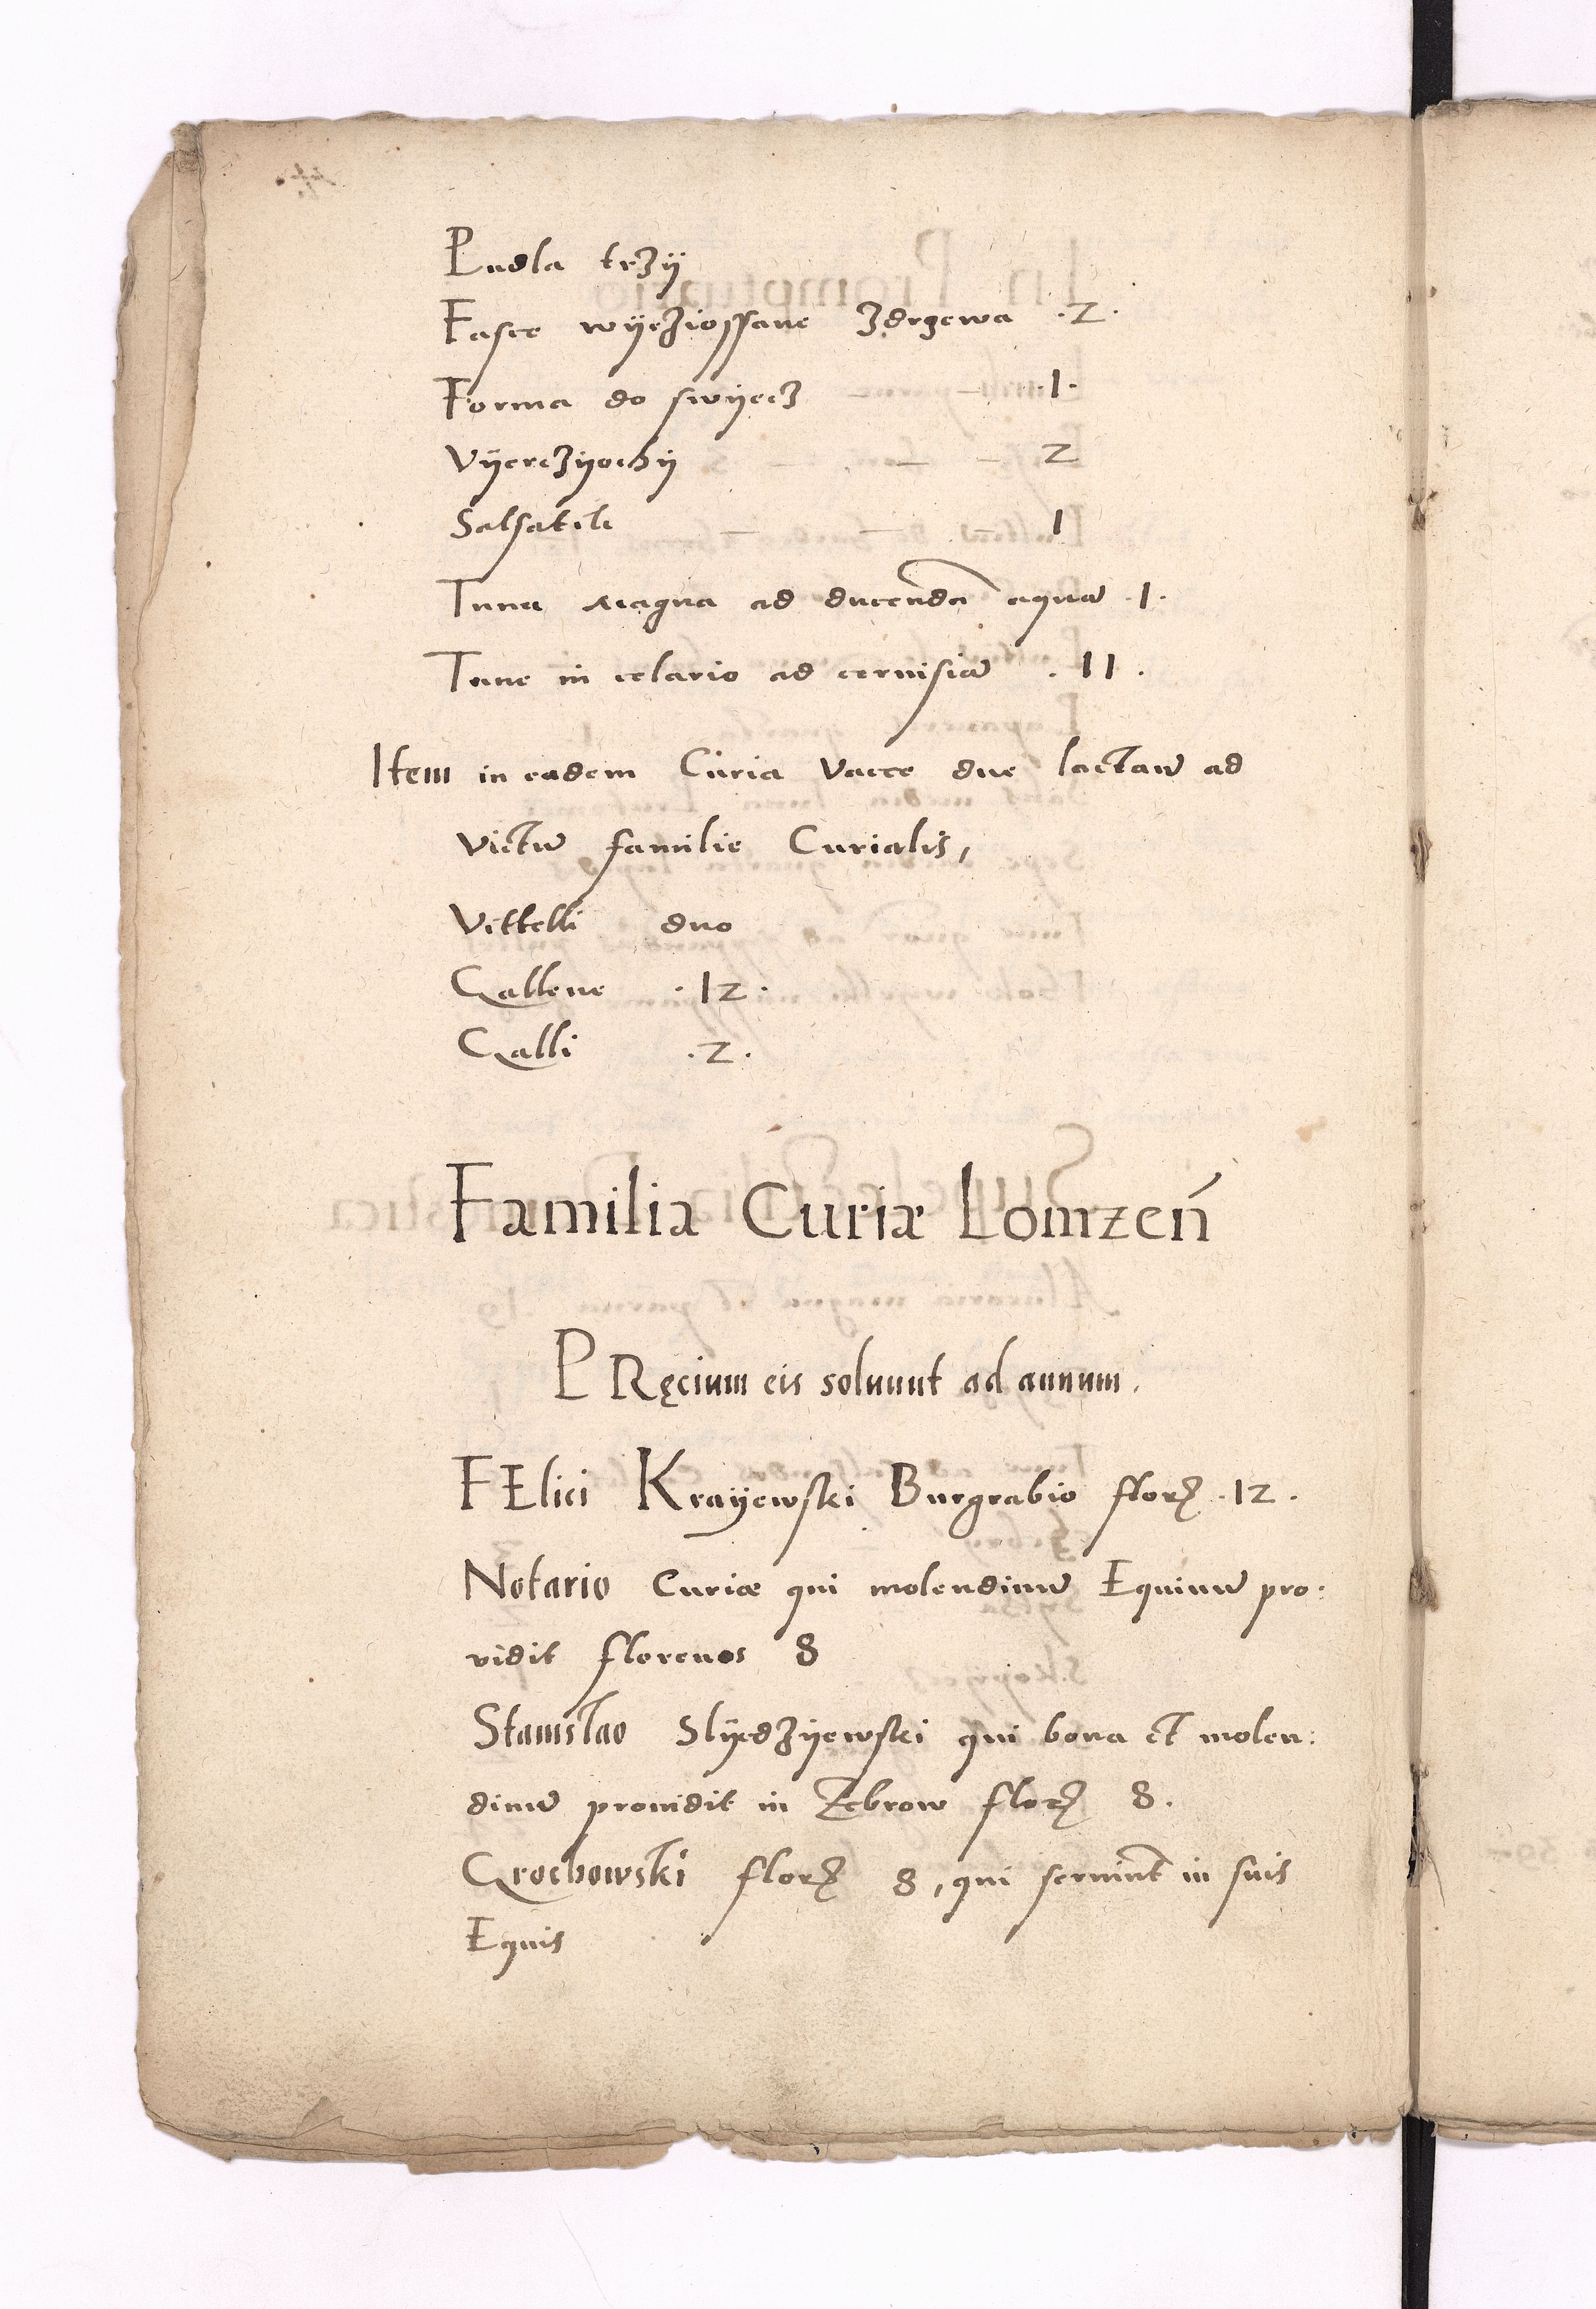 Pudla trzÿ
Fasce wÿeziossane zdrzewa .2.
Forma do swÿecz .1.
Vÿerczÿochÿ 2
Salsatile — — 1
Tuna magna ad ducendā aquā .1.
Tune in celario ad ceruisiā . 11 .
Item in eadem Curia Vacce due lactāt ad
victū familie Curialis,
Vittelli duo
Galline . 12 .
Galli . 2 .
Familia Curiæ Lomzeń
PRęcium eis soluunt ad annum.
FElici Kraÿewski Burgrabio florz . 12 .
Notario Curiæ qui molendinū Equinū pro:
vidit florenos 8
Stanislao Slÿedzÿewski qui bona et molen:
dinū prouidit in Zebrow florz 8.
Grochowski florz 8, qui seruiūt in suis
Equis